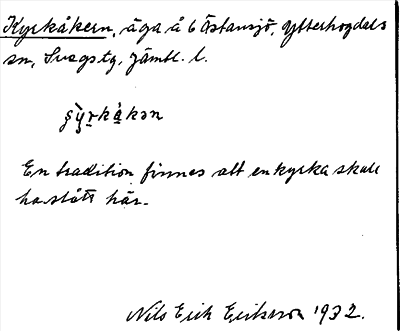 Kyrkåkern, äga å 6 Östansjö, Ytterhogdals
sn, Svegs tg, Jämtl. l.
ʂy̆rkåkən
En tradition finnes att en kyrka skall
ha stått här.
Nils Erik Eriksson 1932.